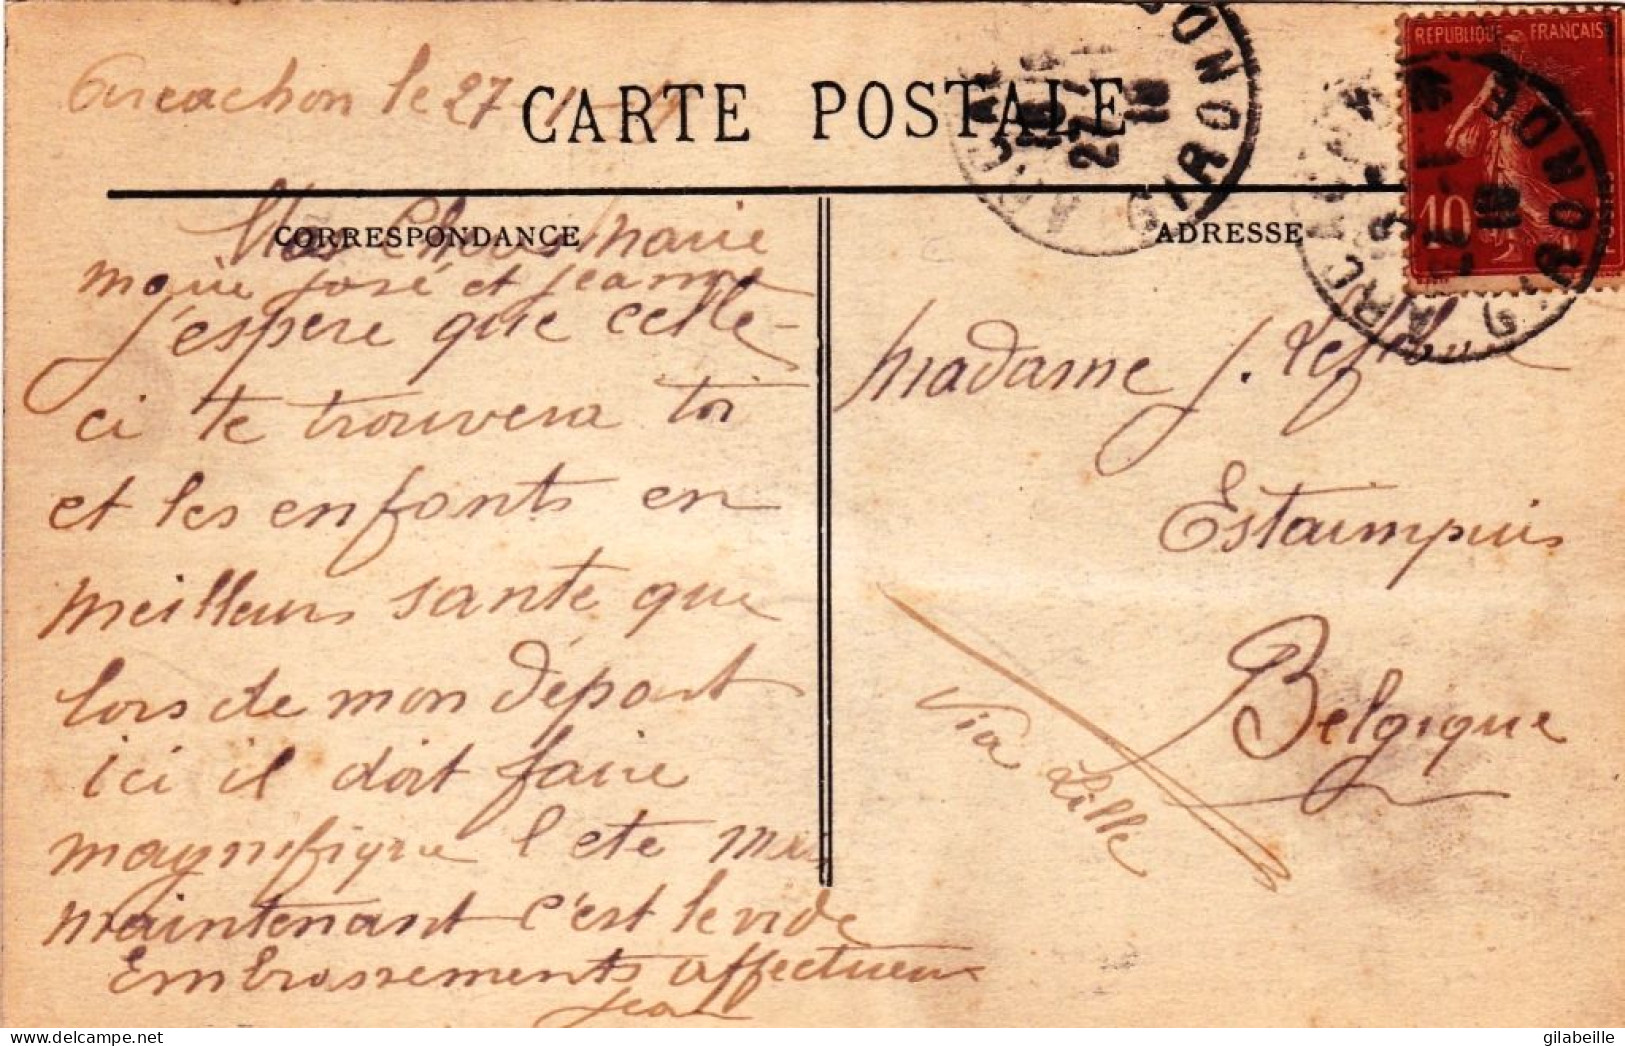 Arcachon le 27-1-19
CARTE POSTALE
CORRESPONDANCE
ADRESSE
REPUBLIQUE FRANÇAISE
10
POSTES
ARCACHON
27-1
19
GIRONDE
Mes Chers Marie
marie josé et jeanne
j'espere que celle-
ci te trouvera toi
et les enfants en
meilleurs sante que
lors de mon départ
ici il doit faire
magnifique l eté mais
maintenant c'est le vide
Embrassements affectueux
Jean
Madame J.
Estaimpuis
Belgique
Via Lille
delcampe.net
gilabeille